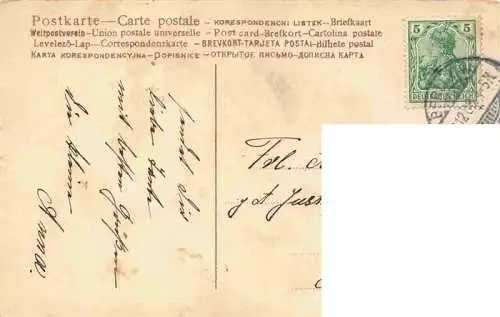 Postkarte — Carte postale – KORESPONDENCNI LISTEK – Briefkaart
Weltpostverein – Union postale universelle – Post card – Brefkort – Cartolina postale
Levelező-Lap – Correspondenzkarte – BREVKORT – TARJETA POSTAL – Bilhete postal
KARTA KORESPONDENCYJNA – DOPISNICE – ОТКРЫТОЕ ПИСЬМО – ДОПИСНА КАРТА
5 5
sendet Dir
liebe Tante
mit besten Grüßen
die kleine
Anna.
Frl.